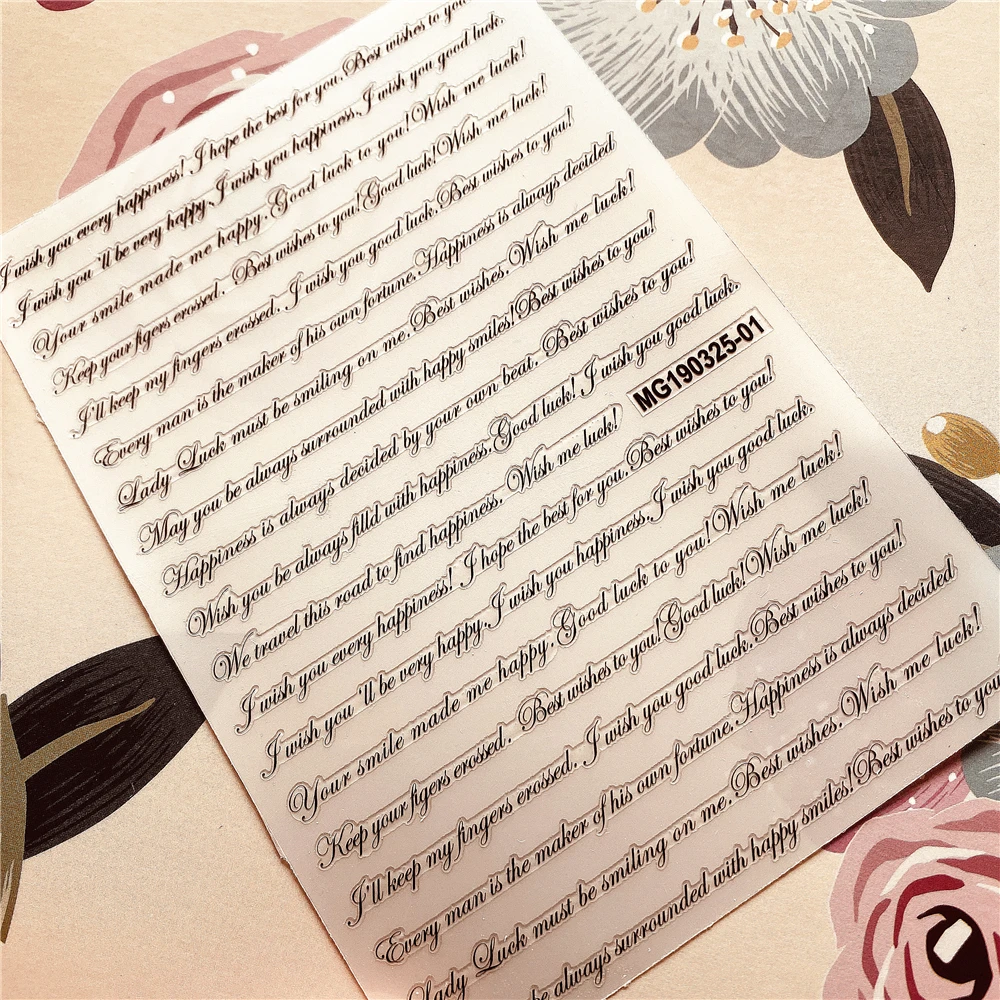 I wish you every happiness! I hope the best for you. Best wishes to you
I wish you 'll be very happy. I wish you happiness. I wish you good luck.
Your smile made me happy. Good luck to you! Wish me luck!
Keep your figers erossed. Best wishes to you! Good luck! Wish me luck!
I'll keep my fingers erossed. I wish you good luck. Best wishes to you!
Every man is the maker of his own fortune. Happiness is always decided
Lady Luck must be smiling on me. Best wishes. Wish me luck!
May you be always surrounded with happy smiles! Best wishes to you!
Happiness is always decided by your own beat. Best wishes to you!
Wish you be always filld with happiness. Good luck! I wish you good luck.
We travel this road to find happiness. Wish me luck! MG190325-01
I wish you every happiness! I hope the best for you. Best wishes to you!
I wish you 'll be very happy. I wish you happiness. I wish you good luck.
Your smile made me happy. Good luck to you! Wish me luck!
Keep your figers erossed. Best wishes to you! Good luck! Wish me luck!
I'll keep my fingers erossed. I wish you good luck. Best wishes to you!
Every man is the maker of his own fortune. Happiness is always decided
Lady Luck must be smiling on me. Best wishes. Wish me luck!
be always surrounded with happy smiles! Best wishes to you